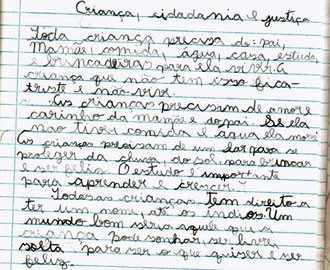 Criança, cidadania e justiça
Toda criança precisa de: pai,
Mamãe, comida, água, casa, estudo,
e brincadeiras para ela vivr. A
criança que não tem isso fica-
triste e não vivi.
As crianças precisam de amor e
carinho da mamãe e do pai. Se ela
não tive comida e água ela morri
As crianças precisam de um lar para se
proteger da chuva, do sol, para brincar
e ser feliz. O estudo é importante
para aprender e crescer.
Todas as crianças tem direito a
ter um nome, até os indios. Um
mundo bom seria aquele que a
criança pode sonhar, ser livre,
solta para ser o que quiser e ser
feliz.